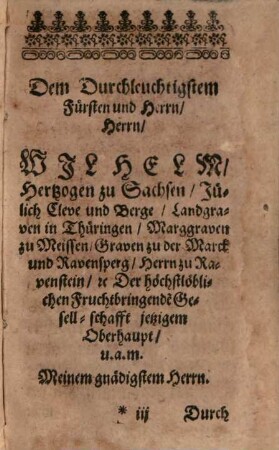 Dem Durchleuchtigstem
Fürsten und Herrn/
Herrn/
WILHELM/
Hertzogen zu Sachsen/ Jü-
lich Cleve und Berge/ Landgra-
ven in Thüringen/ Marggraven
zu Meissen/ Graven zu der Marck
und Ravensperg/ Herrn zu Ra-
venstein/ ꝛc Der höchstlöbli-
chen Fruchtbringendē Ge-
sell-schafft jetzigem
Oberhaupt/
u.a.m.
Meinem gnädigstem Herrn.
* iij Durch